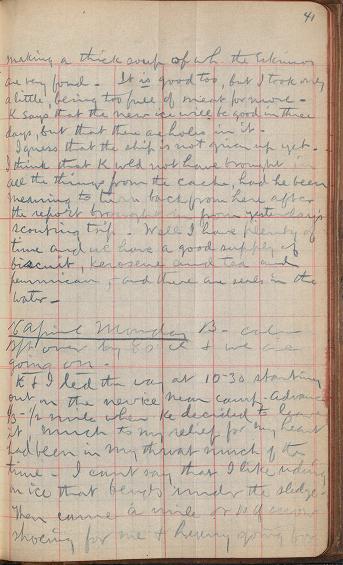 41
making a thick soup of wh. the Eskimos
are very fond - It is good too, but I took only
a little, being too full of meat for more -
K says that the new ice will be good in three
days, but that there are holes in it.
I guess that the ship is not given up yet -
I think that K wld not have brought in
all the things from the cache, had he been
meaning to turn back from here after
the report brought by from yesterdays
scouting trip. Well I have plenty of
time and we have a good supply of
biscuit, kerosene and tea and
pemmican, and there are seals in the
water -
16 April Monday B - calm
over by 80 & we are
going on -
K & I led the way at 10-30 starting
out on the new ice near camp - Advance
mile when he decided to leave
it much to my relief for my heart
had been in my throat much of the
time - I cant say that I like riding
on ice that bends under the sledge -
Then came a mile or so of
for me & heavy going for